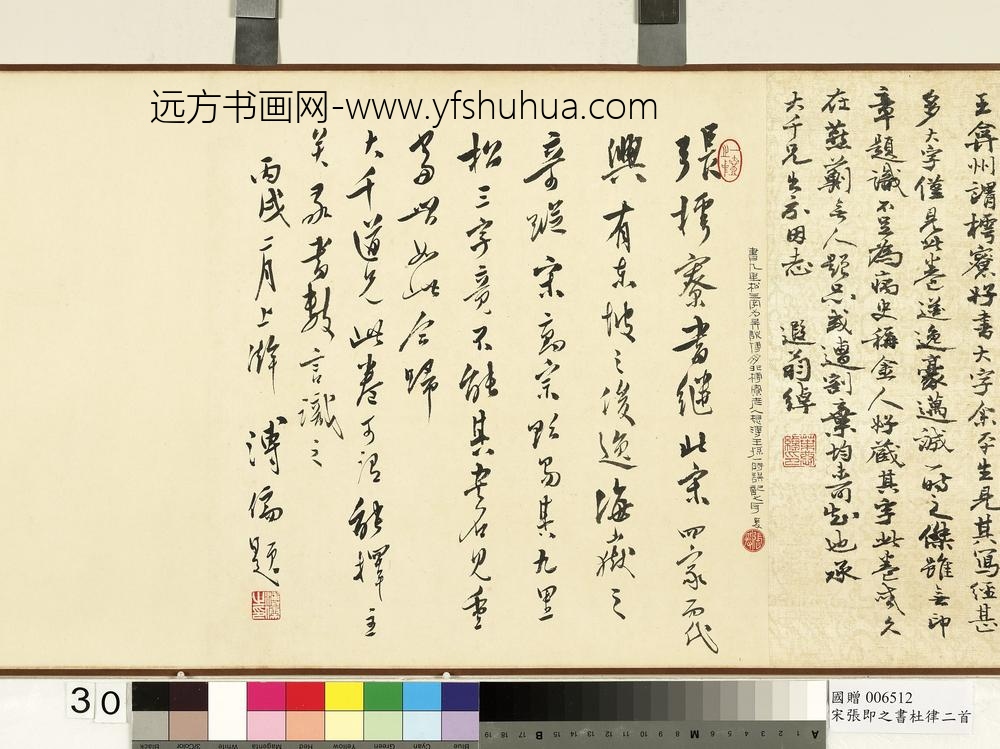 远方书画网-www.yfshuhua.com
王弇州謂樗寮好書大字余平生見其寫經甚
多大字僅見此卷遒逸豪邁誠一時之傑雖無印
章題識不足為病史稱金人好藏其字此卷或久
在燕薊無人題品或遭割棄均未可知也承
大千兄出示因志 遐翁綽
張樗寮書繼此宋四家而代
興有東坡之後逸海嶽之
奇蹤宋高宗欲易其九里
松三字竟不能其書名見重
當世如此今歸
大千道兄此卷可謂能擇主
矣承書數言識之
丙戌二月上澣 溥儒題
30
國贈 006512
宋張即之書杜律二首
Black
3/Color
White
Magenta
Red
Yellow
Green
Cyan
Blue
A 1 2 3 4 5 6 M 8 9 10 11 12 13 14 15 B 17 18 19